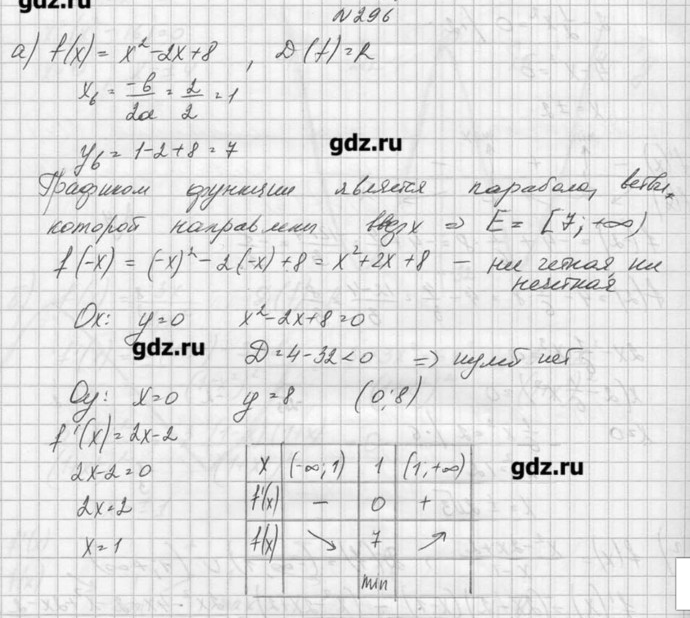 gdz.ru
№296
а) f(x) = x² - 2x + 8 , D(f) = R
xв = -b/2a = 2/2 = 1
yв = 1 - 2 + 8 = 7
gdz.ru
Графиком функции является парабола, ветви,
которой направлены вверх => E = [7; +∞)
f(-x) = (-x)² - 2(-x) + 8 = x² + 2x + 8 – ни четная, ни
нечетная
Ox: y = 0 x² - 2x + 8 = 0
gdz.ru
D = 4 - 32 < 0 => нулей нет
Oy: x = 0 y = 8 (0; 8)
f'(x) = 2x - 2
2x - 2 = 0
2x = 2
x = 1
x (-∞; 1) 1 (1, +∞)
gdz.ru
f'(x) – 0 +
f(x) ↘ 7 ↗
min